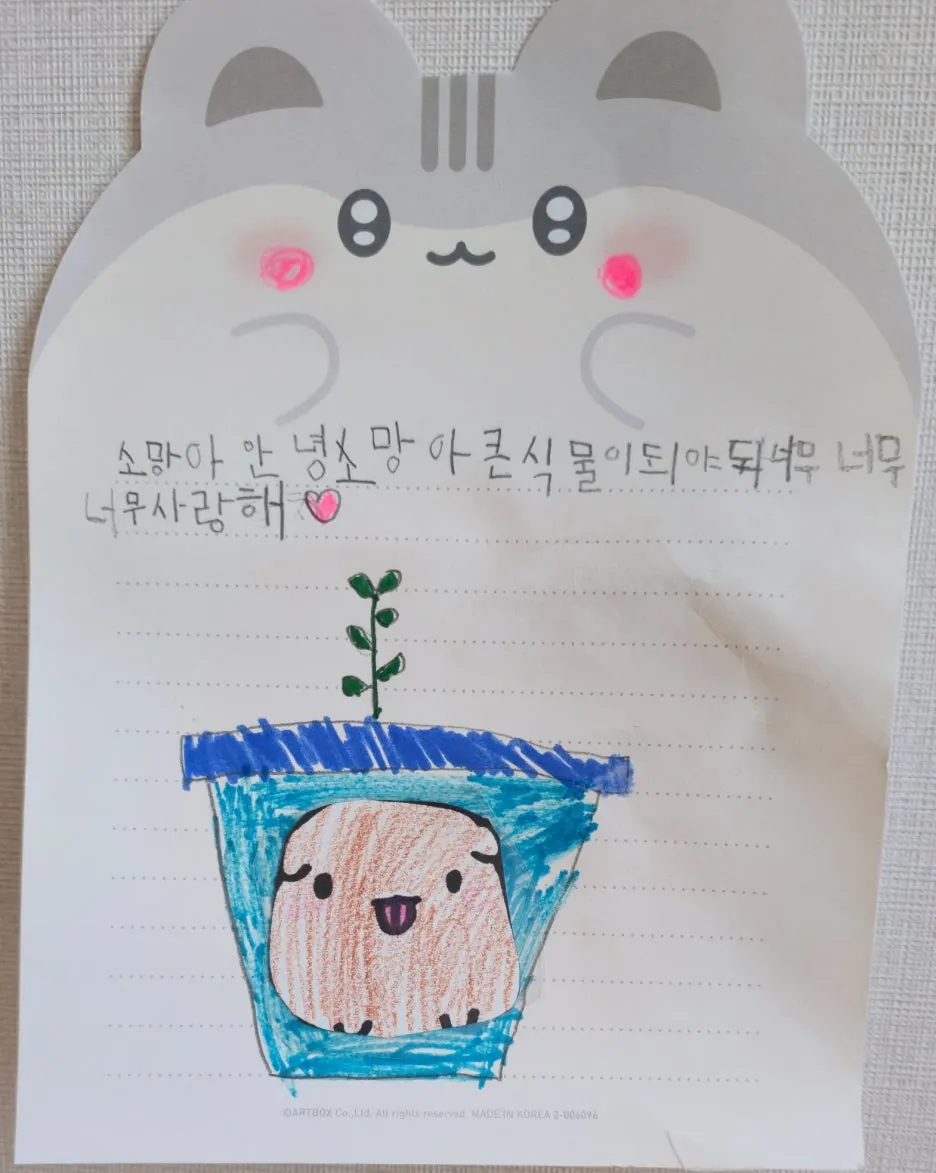 소망아 안녕소망아큰식물이되야돼너무 너무
너무사랑해
©ARTBOX Co.,Ltd. All rights reserved. MADE IN KOREA 2-006096